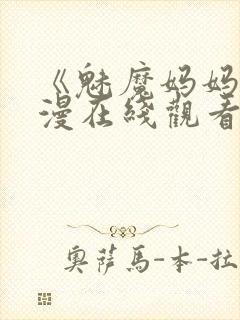 《魅魔妈妈
漫在线觀看
奥薩馬-本-拉